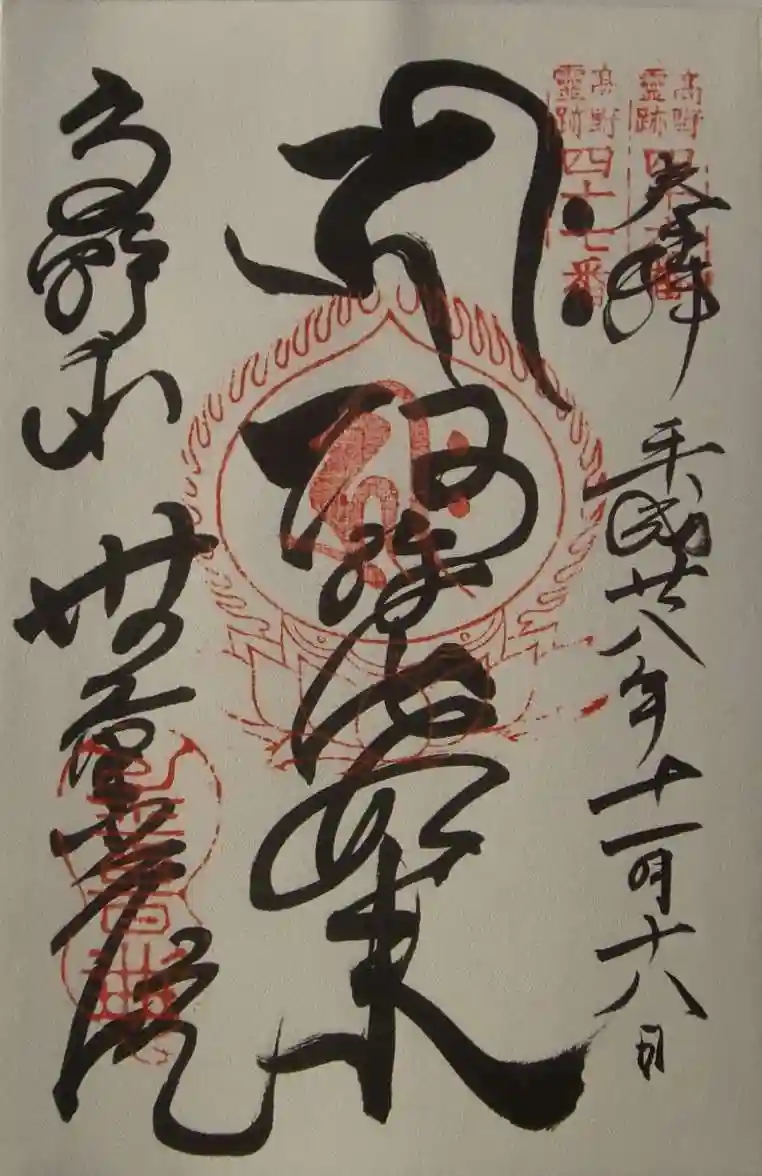 高野
靈跡
四十七番
奉拝 平成廿八年十一月十八日
阿弥陀如来
高野山 無量光院